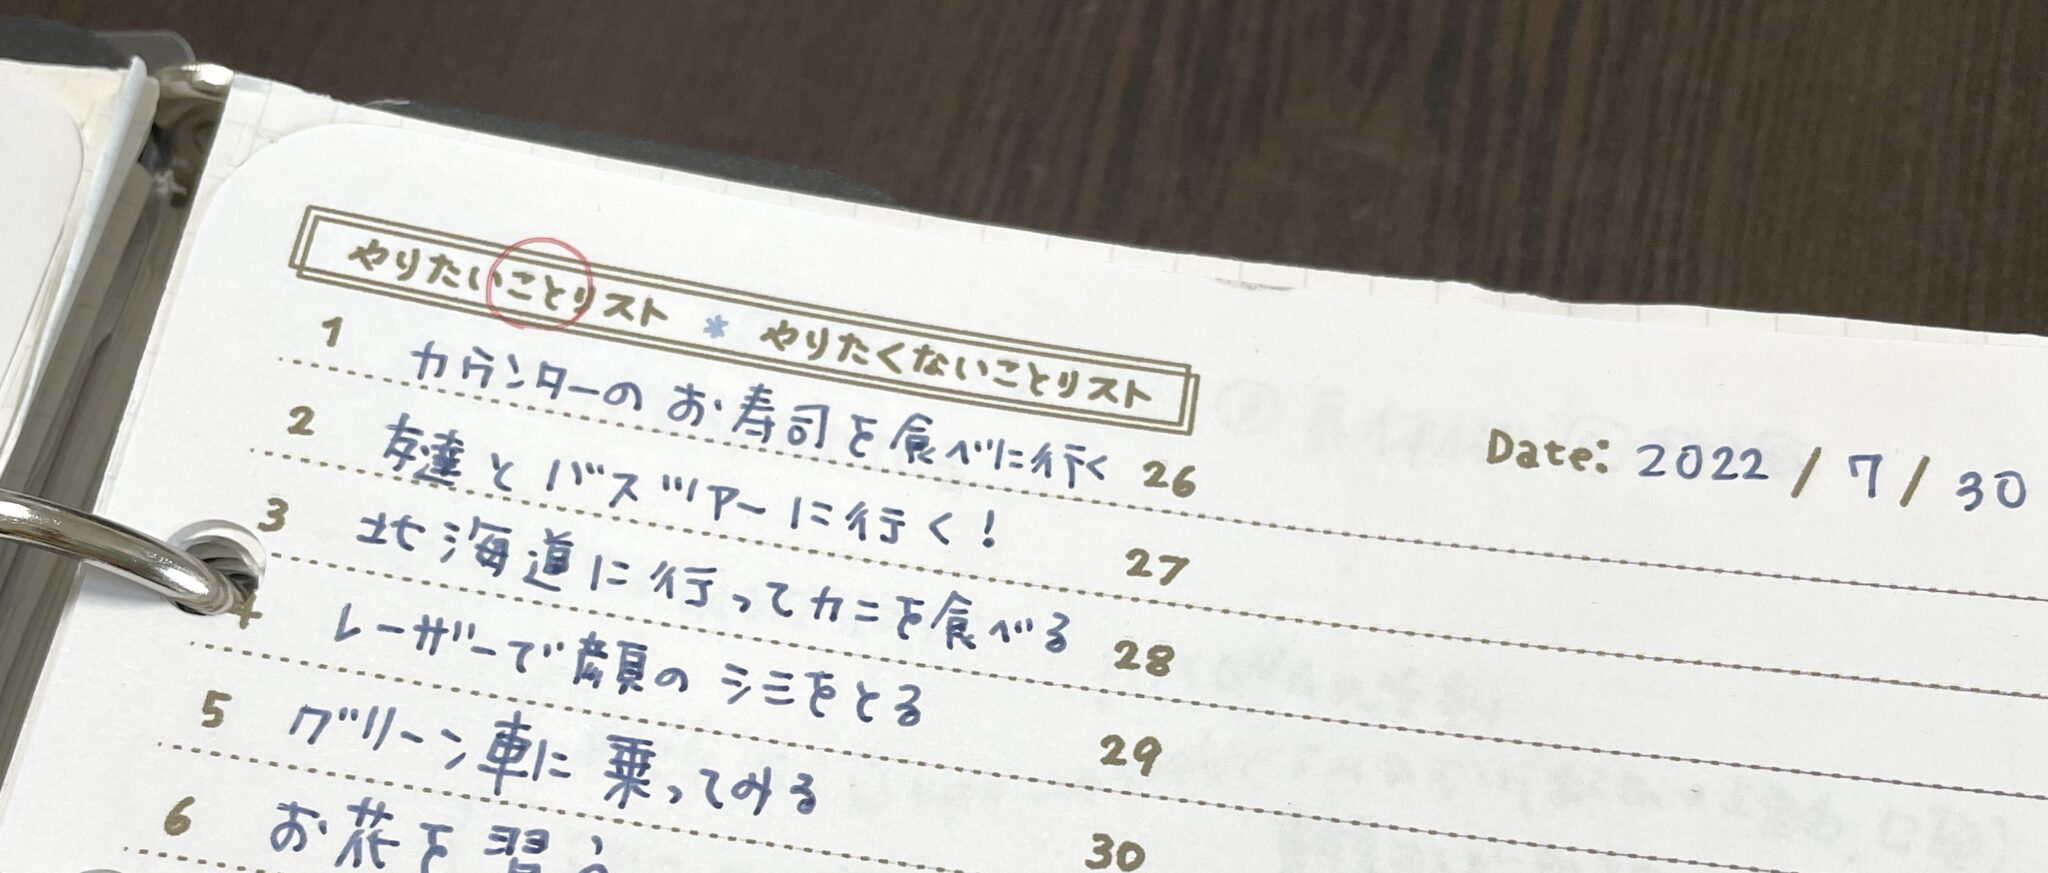 やりたいことリスト * やりたくないことリスト
Date: 2022 / 7 / 30
1 カウンターのお寿司を食べに行く
2 友達とバスツアーに行く!
3 北海道に行ってカニを食べる
4 レーザーで顔のシミをとる
5 グリーン車に乗ってみる
6 お花を習う
26
27
28
29
30